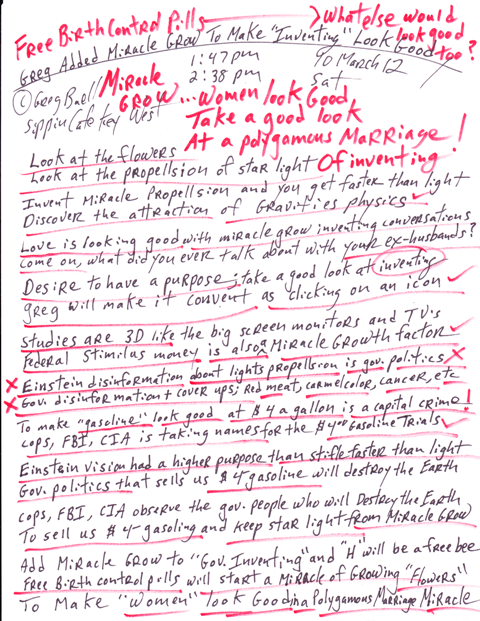 Free Birth Control Pills
> What else would
look good
too?
Greg Added Miracle Grow To Make "Inventing" Look Good
1:47 pm
2:38 pm
90 March 12
Sat
© Greg Buell
Sippin Cafe Key West
Miracle
Grow ... Women look Good
Take a good look
At a polygamous Marriage!
Of inventing
Look at the flowers
Look at the propellsion of star light
Invent Miracle Propellsion and you get faster than light
Discover the attraction of Gravifies physics
Love is looking good with miracle grow inventing conversations
come on, what did you ever talk about with your ex-husbands?
Desire to have a purpose; take a good look at inventing
greg will make it convent as clicking on an icon
Studies are 3D like the big screen monitors and TV's
Federal Stimilus money is also a Miracle Growth factor
Einstein disinformation about lights propellsion is gov. politics
Gov. disinformation + cover ups; red meat, carmel color, cancer, etc
To make "gasoline" look good at $4 a gallon is a capital crime!
cops, FBI, CIA is taking names for the $4.00 Gasoline Trials
Einstein vision had a higher purpose than stifle faster than light
Gov. politics that sells us $4 gasoline will destroy the Earth
cops, FBI, CIA observe the gov. people who will Destroy the Earth
To sell us $4-gasoling and keep star light from Miracle Grow
Add Miracle Grow to "Gov. Inventing" and "H" will be a free bee
Free Birth control pills will start a Miracle of Growing "Flowers"!
To Make "Women" look Good in a Polygamous Marriage Miracle